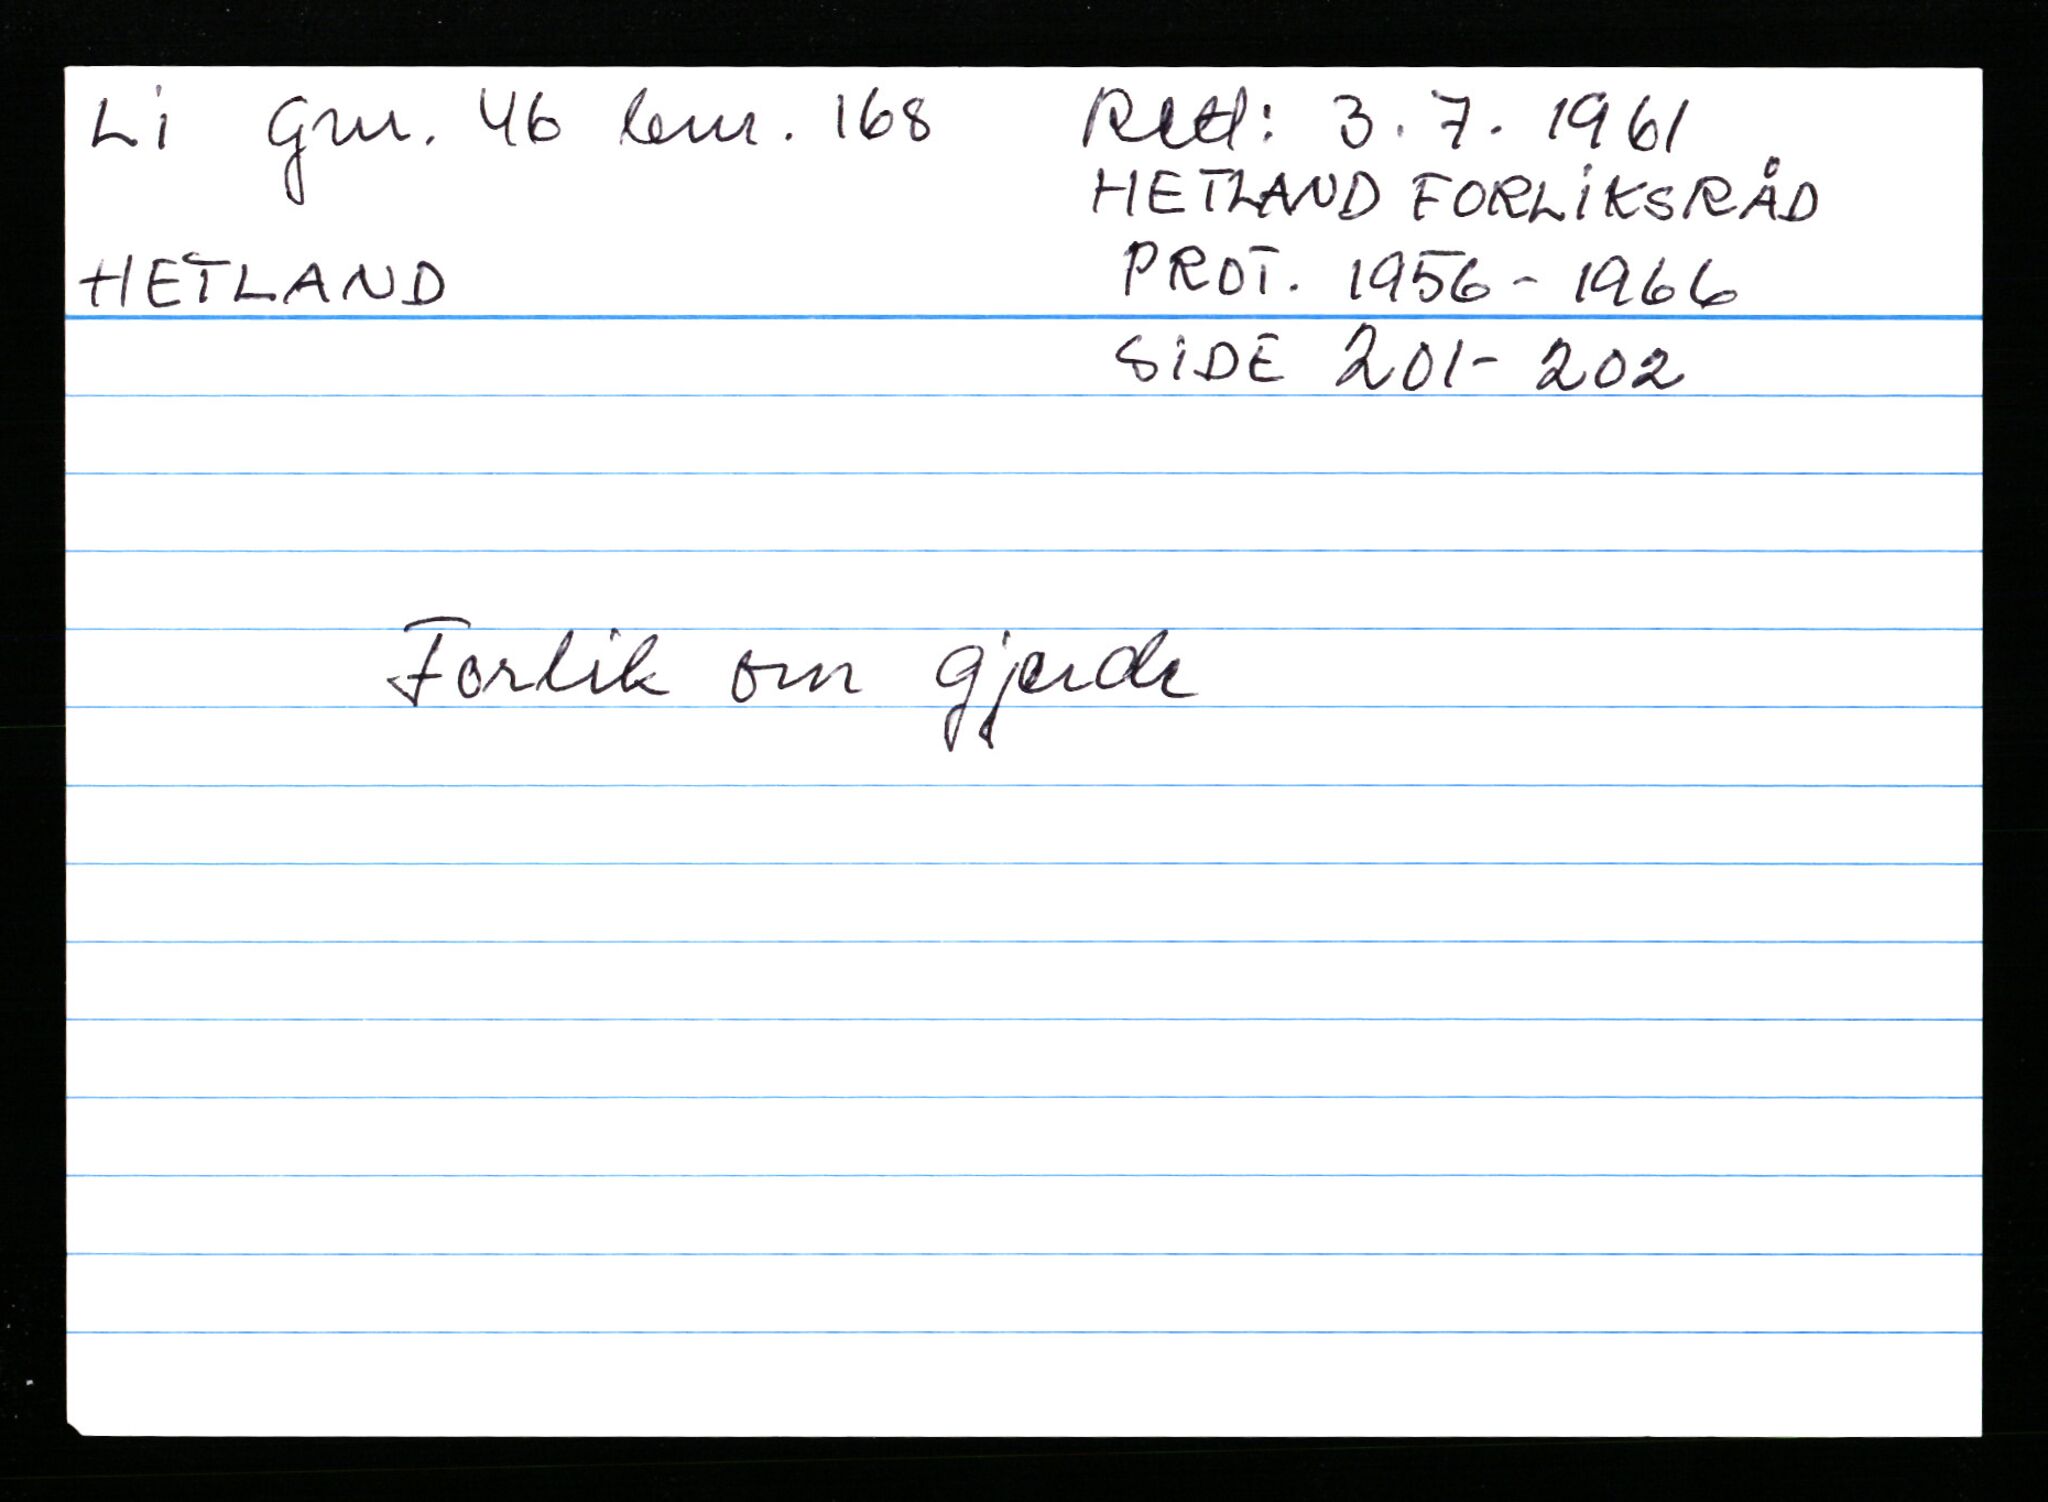 Li Gnr. 46 bnr. 168
Retl: 3.7.1961
HETLAND FORLIKSRÅD
HETLAND
PROT. 1956-1966
SIDE 201-202
Forlik om gjerde